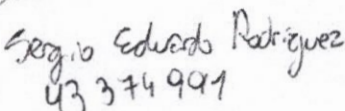 Sergio Eduardo Rodriguez
43 374 991